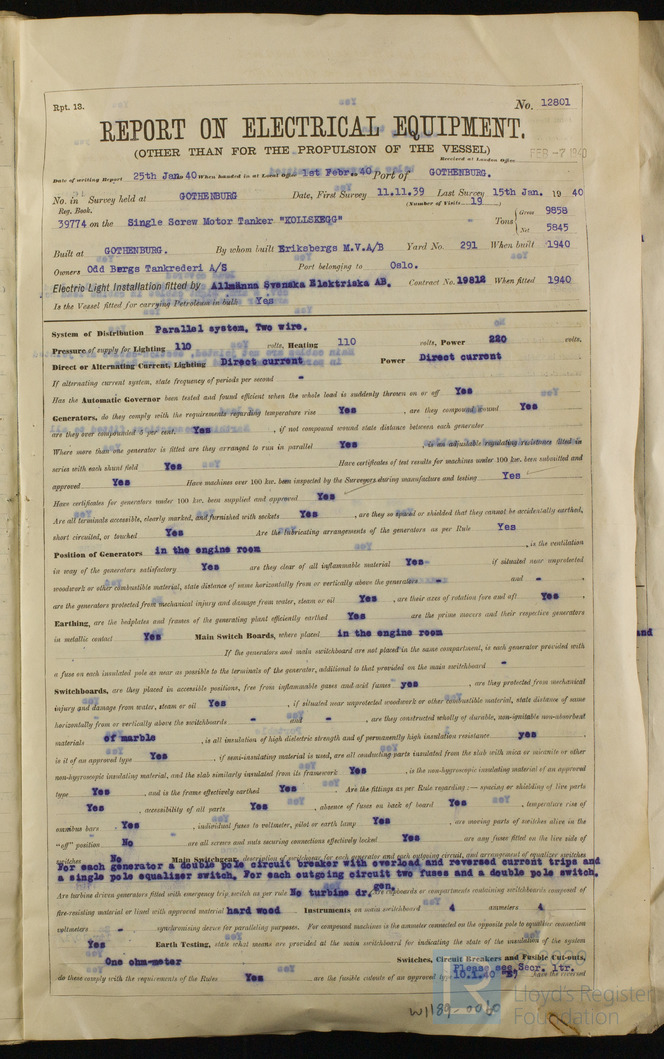 Rpt. 13.
No. 12801
REPORT ON ELECTRICAL EQUIPMENT.
(OTHER THAN FOR THE PROPULSION OF THE VESSEL)
Received at London Office FEB -7 1940
Date of writing Report 25th Jan. 40 When handed in at Local Office 1st Febr. 40 Port of GOTHENBURG.
No. in Survey held at GOTHENBURG Date, First Survey 11.11.39 Last Survey 15th Jan. 19 40
Reg. Book. (Number of Visits 19 )
39774 on the Single Screw Motor Tanker "KOLLSKEGG" Tons { Gross 9858
Net 5845
Built at GOTHENBURG. By whom built Eriksbergs M.V.A/B Yard No. 291 When built 1940
Owners Odd Bergs Tankrederi A/S Port belonging to Oslo.
Electric Light Installation fitted by Allmänna Svenska Elektriska AB. Contract No. 19812 When fitted 1940
Is the Vessel fitted for carrying Petroleum in bulk Yes
System of Distribution Parallel system, Two wire.
Pressure of supply for Lighting 110 volts, Heating 110 volts, Power 220 volts.
Direct or Alternating Current, Lighting Direct current Power Direct current
If alternating current system, state frequency of periods per second -
Has the Automatic Governor been tested and found efficient when the whole load is suddenly thrown on or off Yes
Generators, do they comply with the requirements regarding temperature rise Yes , are they compound wound Yes
are they over compounded 5 per cent. Yes , if not compound wound state distance between each generator
Where more than one generator is fitted are they arranged to run in parallel Yes , is an adjustable regulating resistance fitted in
series with each shunt field Yes Have certificates of test results for machines under 100 kw. been submitted and
approved Yes Have machines over 100 kw. been inspected by the Surveyors during manufacture and testing Yes
Have certificates for generators under 100 kw. been supplied and approved Yes
Are all terminals accessible, clearly marked, and furnished with sockets Yes , are they so spaced or shielded that they cannot be accidentally earthed,
short circuited, or touched Yes Are the lubricating arrangements of the generators as per Rule Yes
Position of Generators in the engine room , is the ventilation
in way of the generators satisfactory Yes are they clear of all inflammable material Yes if situated near unprotected
woodwork or other combustible material, state distance of same horizontally from or vertically above the generators - and -
are the generators protected from mechanical injury and damage from water, steam or oil Yes , are their axes of rotation fore and aft Yes
Earthing, are the bedplates and frames of the generating plant efficiently earthed Yes are the prime movers and their respective generators
in metallic contact Yes Main Switch Boards, where placed in the engine room
If the generators and main switchboard are not placed in the same compartment, is each generator provided with
a fuse on each insulated pole as near as possible to the terminals of the generator, additional to that provided on the main switchboard -
Switchboards, are they placed in accessible positions, free from inflammable gases and acid fumes yes , are they protected from mechanical
injury and damage from water, steam or oil Yes , if situated near unprotected woodwork or other combustible material, state distance of same
horizontally from or vertically above the switchboards - and - , are they constructed wholly of durable, non-ignitable non-absorbent
materials of marble , is all insulation of high dielectric strength and of permanently high insulation resistance yes
is it of an approved type Yes , if semi-insulating material is used, are all conducting parts insulated from the slab with mica or micanite or other
non-hygroscopic insulating material, and the slab similarly insulated from its framework Yes , is the non-hygroscopic insulating material of an approved
type Yes , and is the frame effectively earthed Yes Are the fittings as per Rule regarding :— spacing or shielding of live parts
Yes , accessibility of all parts Yes , absence of fuses on back of board Yes , temperature rise of
omnibus bars Yes , individual fuses to voltmeter, pilot or earth lamp Yes , are moving parts of switches alive in the
"off" position No are all screws and nuts securing connections effectively locked Yes are any fuses fitted on the live side of
switches No Main Switchgear, description of switchgear for each generator and each outgoing circuit, and arrangement of equalizer switches
For each generator a double pole circuit breaker with overload and reversed current trips and
a single pole equalizer switch. For each outgoing circuit two fuses and a double pole switch.
Are turbine driven generators fitted with emergency trip switch as per rule No turbine dr. gen. Are cupboards or compartments containing switchboards composed of
fire-resisting material or lined with approved material hard wood Instruments on main switchboard 4 ammeters 4
voltmeters - synchronising device for paralleling purposes. For compound machines is the ammeter connected on the opposite pole to equalizer connection
Yes Earth Testing, state what means are provided at the main switchboard for indicating the state of the insulation of the system
One ohm-meter Switches, Circuit Breakers and Fusible Cut-outs,
Please see Secr. ltr.
do these comply with the requirements of the Rules Yes are the fusible cutouts of an approved type 10.1.40 "E" have the reversed
W1189-0060
© 2020
Lloyd's Register
Foundation